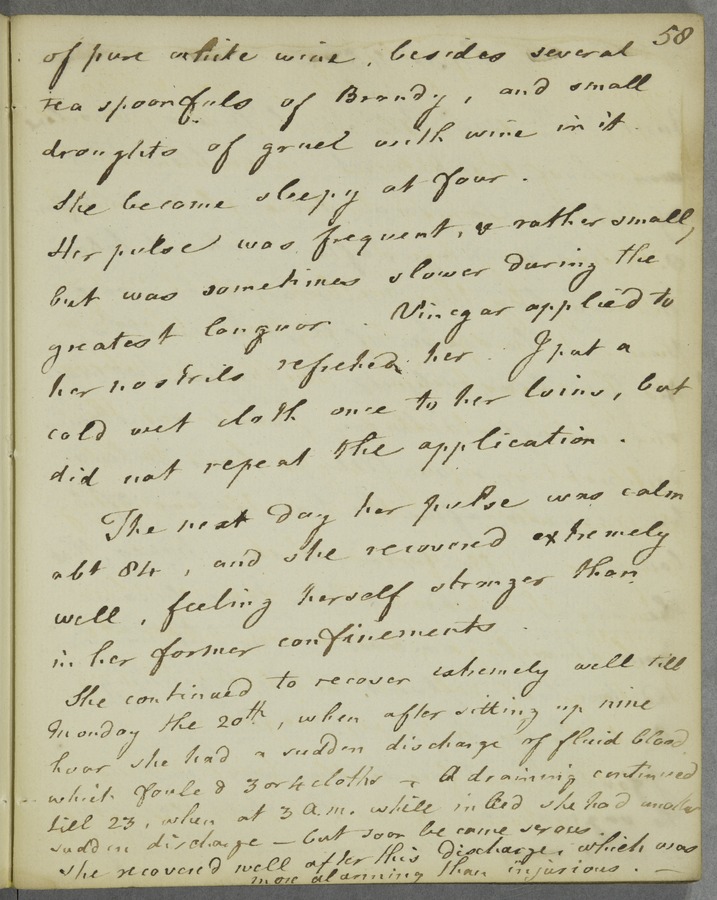 58
of pure white wine, besides several
tea spoonfuls of Brandy, and small
droughts of gruel with wine in it.
She became sleepy at four.
Her pulse was frequent, & rather small,
but was sometimes slower during the
greatest languor. Vinegar applied to
her nostrils refreshed her. I put a
cold wet cloth once to her loins, but
did not repeat the application.
The next day her pulse was calm
abt 84, and she recovered extremely
well, feeling herself stronger than
in her former confinements.
She continued to recover extremely well till
Monday the 20th, when after sitting up nine
hour she had a sudden discharge of fluid blood
which fouled 3 or 4 cloths - A draining continued
till 23, when at 3 a.m. while in bed she had another
sudden discharge - but soon became serous.
she recovered well after this discharge, which was
more alarming than injurious. -